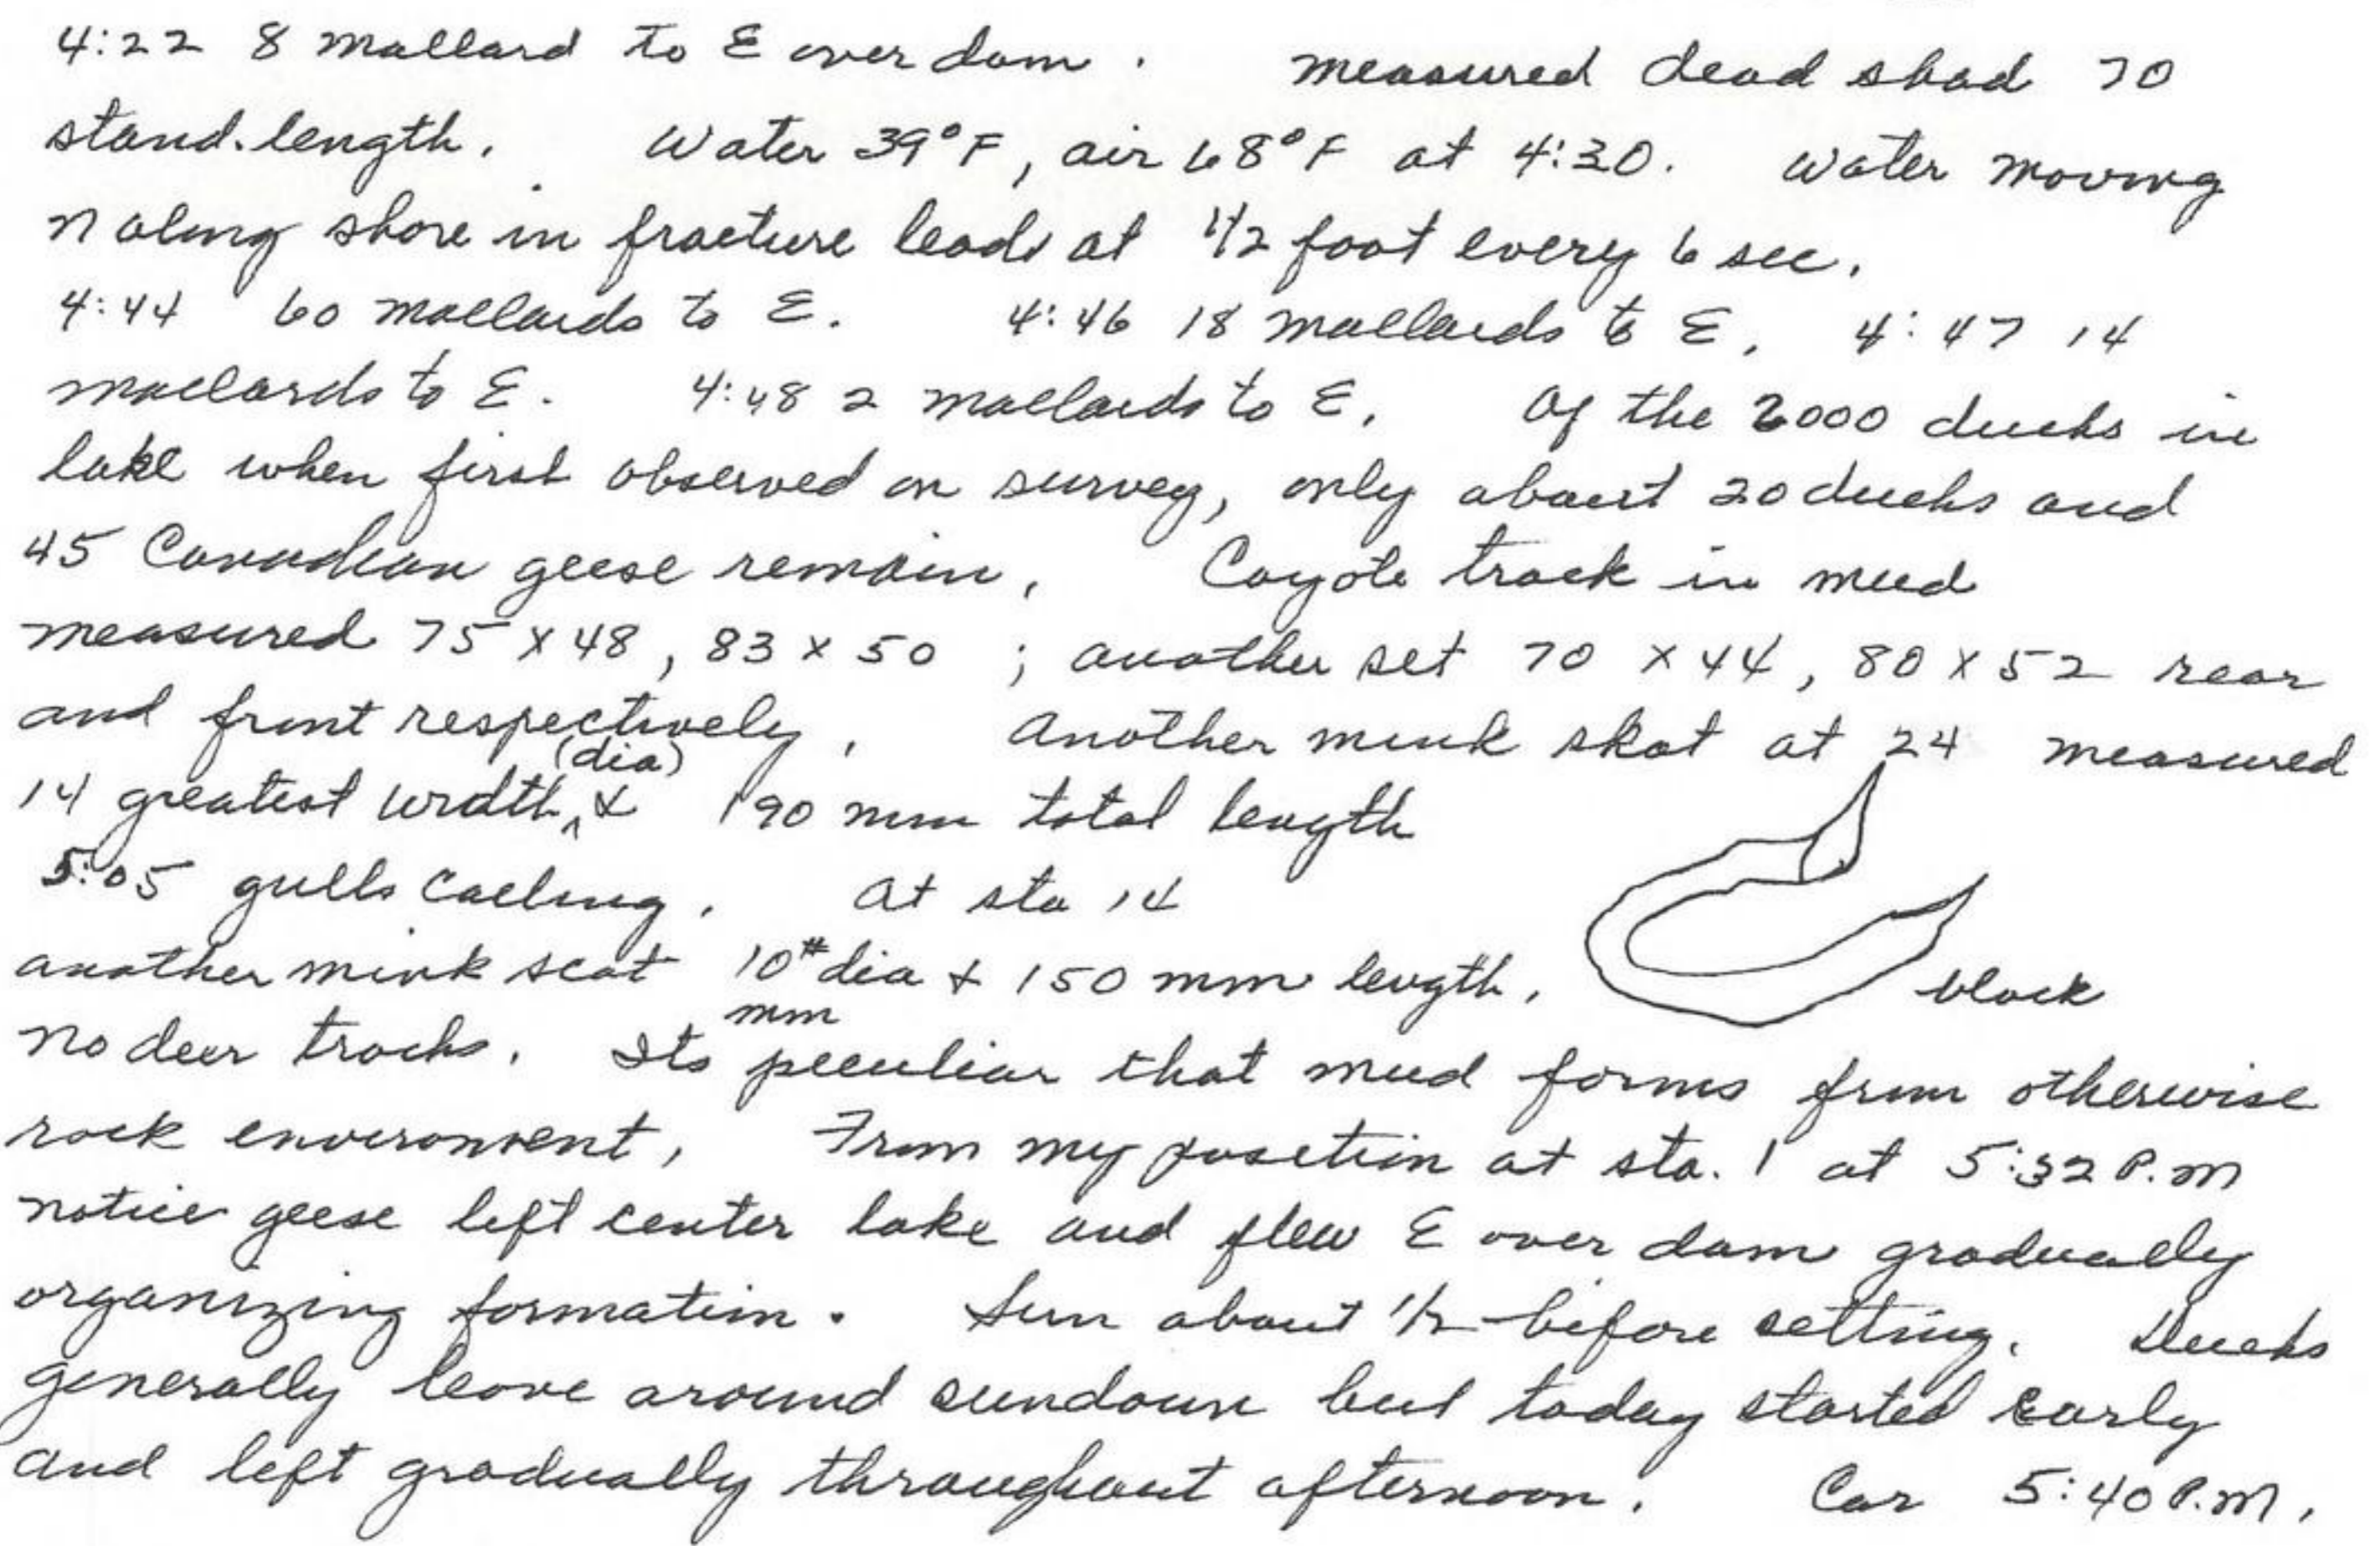 4:22 8 mallard to E over dam. measured dead shad 70
stand. length. Water 39°F, air 68°F at 4:30. Water moving
N along shore in fracture leads at 1/2 foot every 6 sec.
4:44 60 mallards to E. 4:46 18 mallards to E. 4:47 14
mallards to E. 4:48 2 mallards to E. Of the 2000 ducks in
lake when first observed on survey, only about 20 ducks and
45 Canadian geese remain. Coyote track in mud
measured 75 x 48, 83 x 50 ; another set 70 x 44, 80 x 52 rear
and front respectively. Another mink skat at 24 measured
14 greatest width (dia) & 190 mm total length
5:05 gulls calling. At sta 14
another mink scat 10 mm dia & 150 mm length.
black
No deer tracks. Its peculiar that mud forms from otherwise
rock environment. From my position at sta. 1 at 5:32 P.M
notice geese left center lake and flew E over dam gradually
organizing formation. Sun about 1/2 before setting. Ducks
generally leave around sundown but today started early
and left gradually throughout afternoon. Car 5:40 P.M.